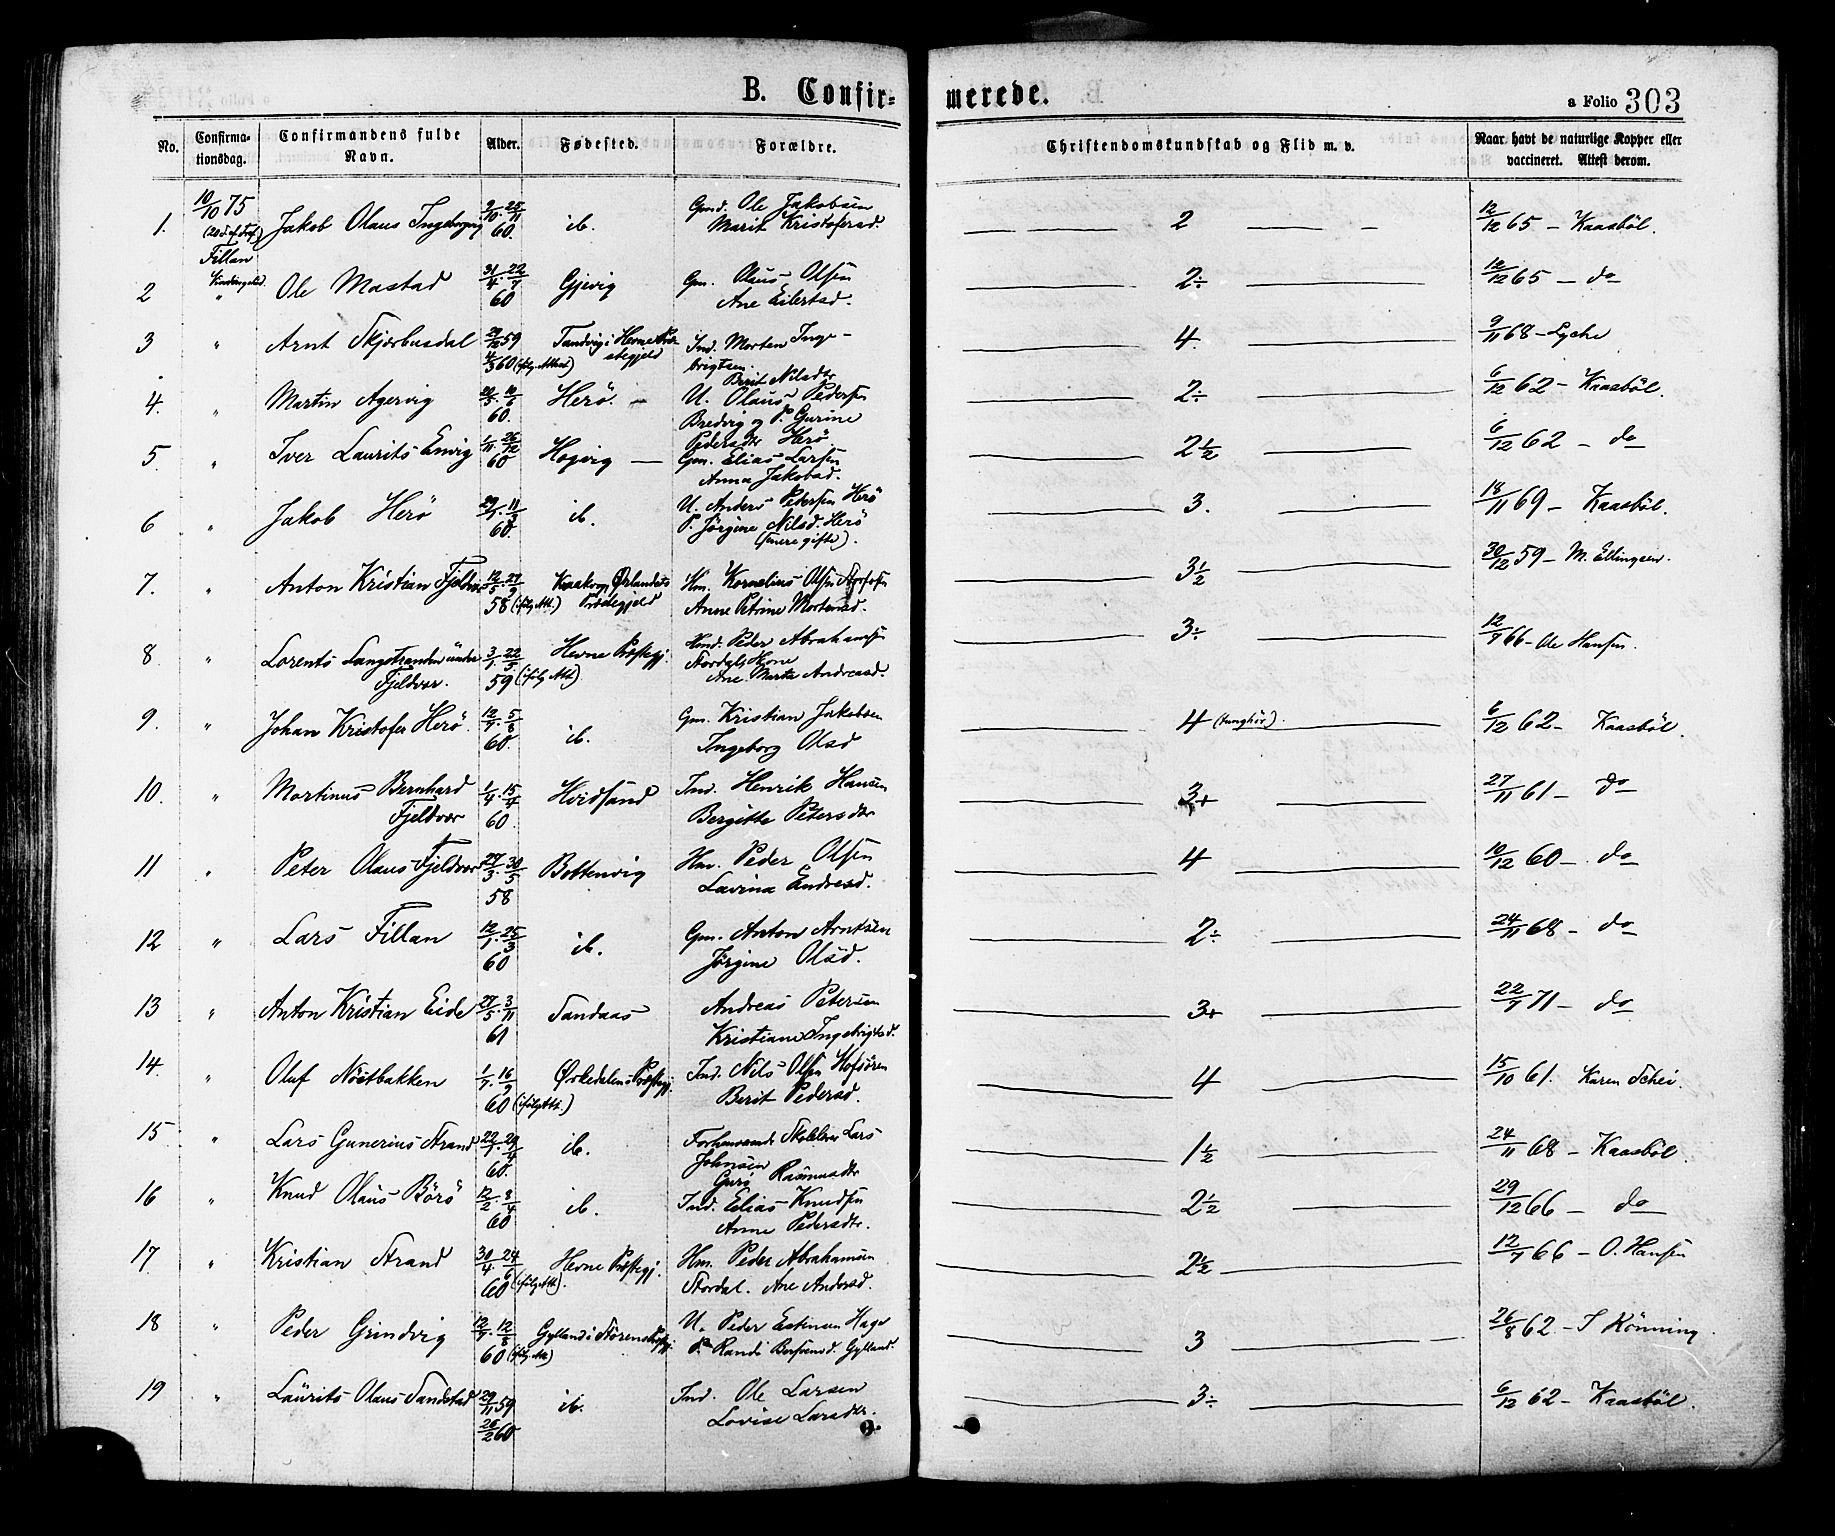 B. Confir-
merede.
a Folio 303
No.
Confirma-
tionsdag.
Confirmandens fulde
Navn.
Alder.
Fødested.
Forældre.
Christendomskundskab og Flid m. v.
Naar havt de naturlige Kopper eller
vaccineret. Attest derom.
1. 10/10 75 Jakob Olaus 2/10. 25/11 60. ib. Gmd. Ole Jakobsen
Marit Kristofersd. 2 12/12 65 – Kaasbøl.
Fillan
2 " Ole Mastad 22/7 60 Gjevig Gm. Olaus Olsen
Ane Eilertsd. 2÷ 12/12 65 – do
3 " Arnt Skjærbusdal 59 Hevne Præ-
stegjeld Ind. Morten Inge-
brigtsen. 4. 9/11 68 – Lyche
4/3 60 (ifølg. Attest)
Berit Nilsdtr
4. " Martin Agervig 60. Herø. – U. Olaus Pedersen
Bredvig og P. Gurine
Pedersdtr Herø 2÷ 6/12 62 – Kaasbøl.
5. " Iver Laurits Envig 1/11. 26/12 60 Hogvig – Gm. Elias Larsen
Anna Jakobsd. 2½ 6/12 62 – do
6 " Jakob Herø 60. ib. U. Anders Pedersen Herø
P. Jørgine Nilsd. Herø
(senere gifte). 3. 18/11 69 – Kaasbøl.
7. " Anton Kristian Fjeldvær 58 (ifølg Att.) Ørlandets
Præstegjeld Hm. Kornelius Olsen
Anne Petrine Mortensd. 3½ 30/12 59 – M. Ellingsen.
8 " Lorents Langstranden
Fjeldvær. 3/1. 22/5. 59 (ifølg Att.) Hevne Præstegj. Hmd. Peder Abrahamsen
Stordal, Hevne
Ane Marta Andreasd. 3÷ 12/7 66 – Ole Hansen.
9. " Johan Kristofer Herø. 12/7. 5/8 60. ib. Gm. Kristian Jakobsen
Ingeborg Olsd 4 (tunghør). 6/12 62 – Kaasbøl.
10. " Martinus Bernhard
Fjeldvær 1/4. 15/4 60. Hvidsand Ind. Henrik Hansen
Bergitte Petersdtr 3+ 27/11 61 – do
11 " Peter Olaus Fjeldvær 27/3. 30/5 58 Bottenvig Hm. Peder Olsen
Lavina Endresd. 4 10/12 60 – do
12 " Lars Fillan 12/1. 25/3 60 ib. Gm. Anton Arntsen
Jørgine Olsd. 2÷ 24/11 68 – do
13 " Anton Kristian Eide 27/5. 3/11 61 Sandaas Andreas Petersen
Kristiane Ingebrigtsd. 3+ 22/7 71 – do
14. " Oluf Nöstbakken 1/7. 16/9 60 (ifølg Att.) Ørkedalens Præstegj. Ind. Nils Olsen Hofsören
Berit Pedersd. 4 15/10 61. Karen Schei.
15 " Lars Gunerius Strand 60. ib. Forhenværende Skolelærer Lars
Johnsen
Guri Rasmusdtr 1½ 24/11 68 – Kaasbøl.
16 " Knud Olaus Börö 12/2. 8/4 60 ib. Ind. Elias Knudsen
Anne Pedersdtr. 2½ 29/12 66 – do
17. " Kristian Strand 30/4. 24/6 60 (ifølg Att.) Hevne Præstegj. Hm. Peder Abrahamsen
Stordal. Ane Andersd. 2½ 12/7 66 – O. Hansen
18 " Peder Grindvig 12/7. 12/8 60 (ifølg Att) Gylland i Størens Præstegj. U. Peder Estensen Hage
P. Randi Gylland. 3 26/8 62 – I Könning.
19 " Laurits Olaus Sandstad 29/11 59 26/2 60 ib. Ind. Ole Larsen
Lovise Larsdtr. 3÷ 6/12 62 – Kaasbøl.